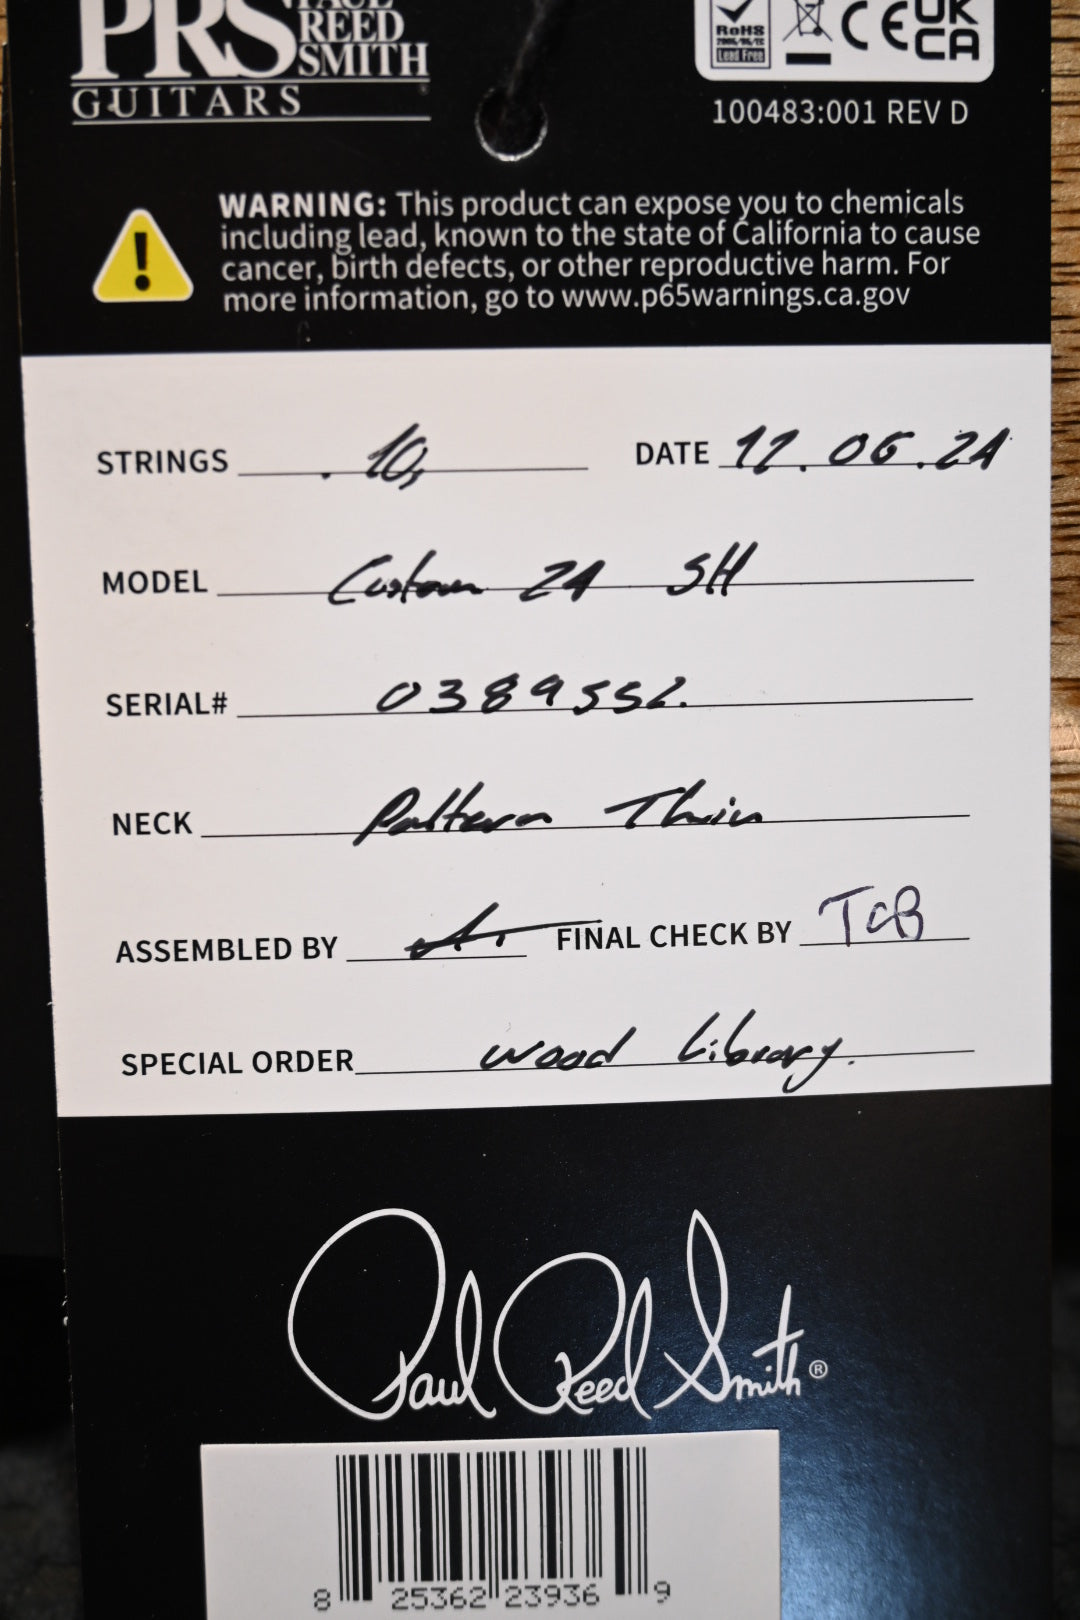 PRS PAUL
REED
SMITH
GUITARS
RoHS
2005/95/EC
Lead Free
CE UK
CA
100483:001 REV D
WARNING: This product can expose you to chemicals
including lead, known to the state of California to cause
cancer, birth defects, or other reproductive harm. For
more information, go to www.p65warnings.ca.gov
STRINGS .10, DATE 12.06.24
MODEL Custom 24 SH
SERIAL# 0389552.
NECK Pattern Thin
ASSEMBLED BY FINAL CHECK BY TCB
SPECIAL ORDER Wood Library.
Paul Reed Smith®
8 25362 23936 9